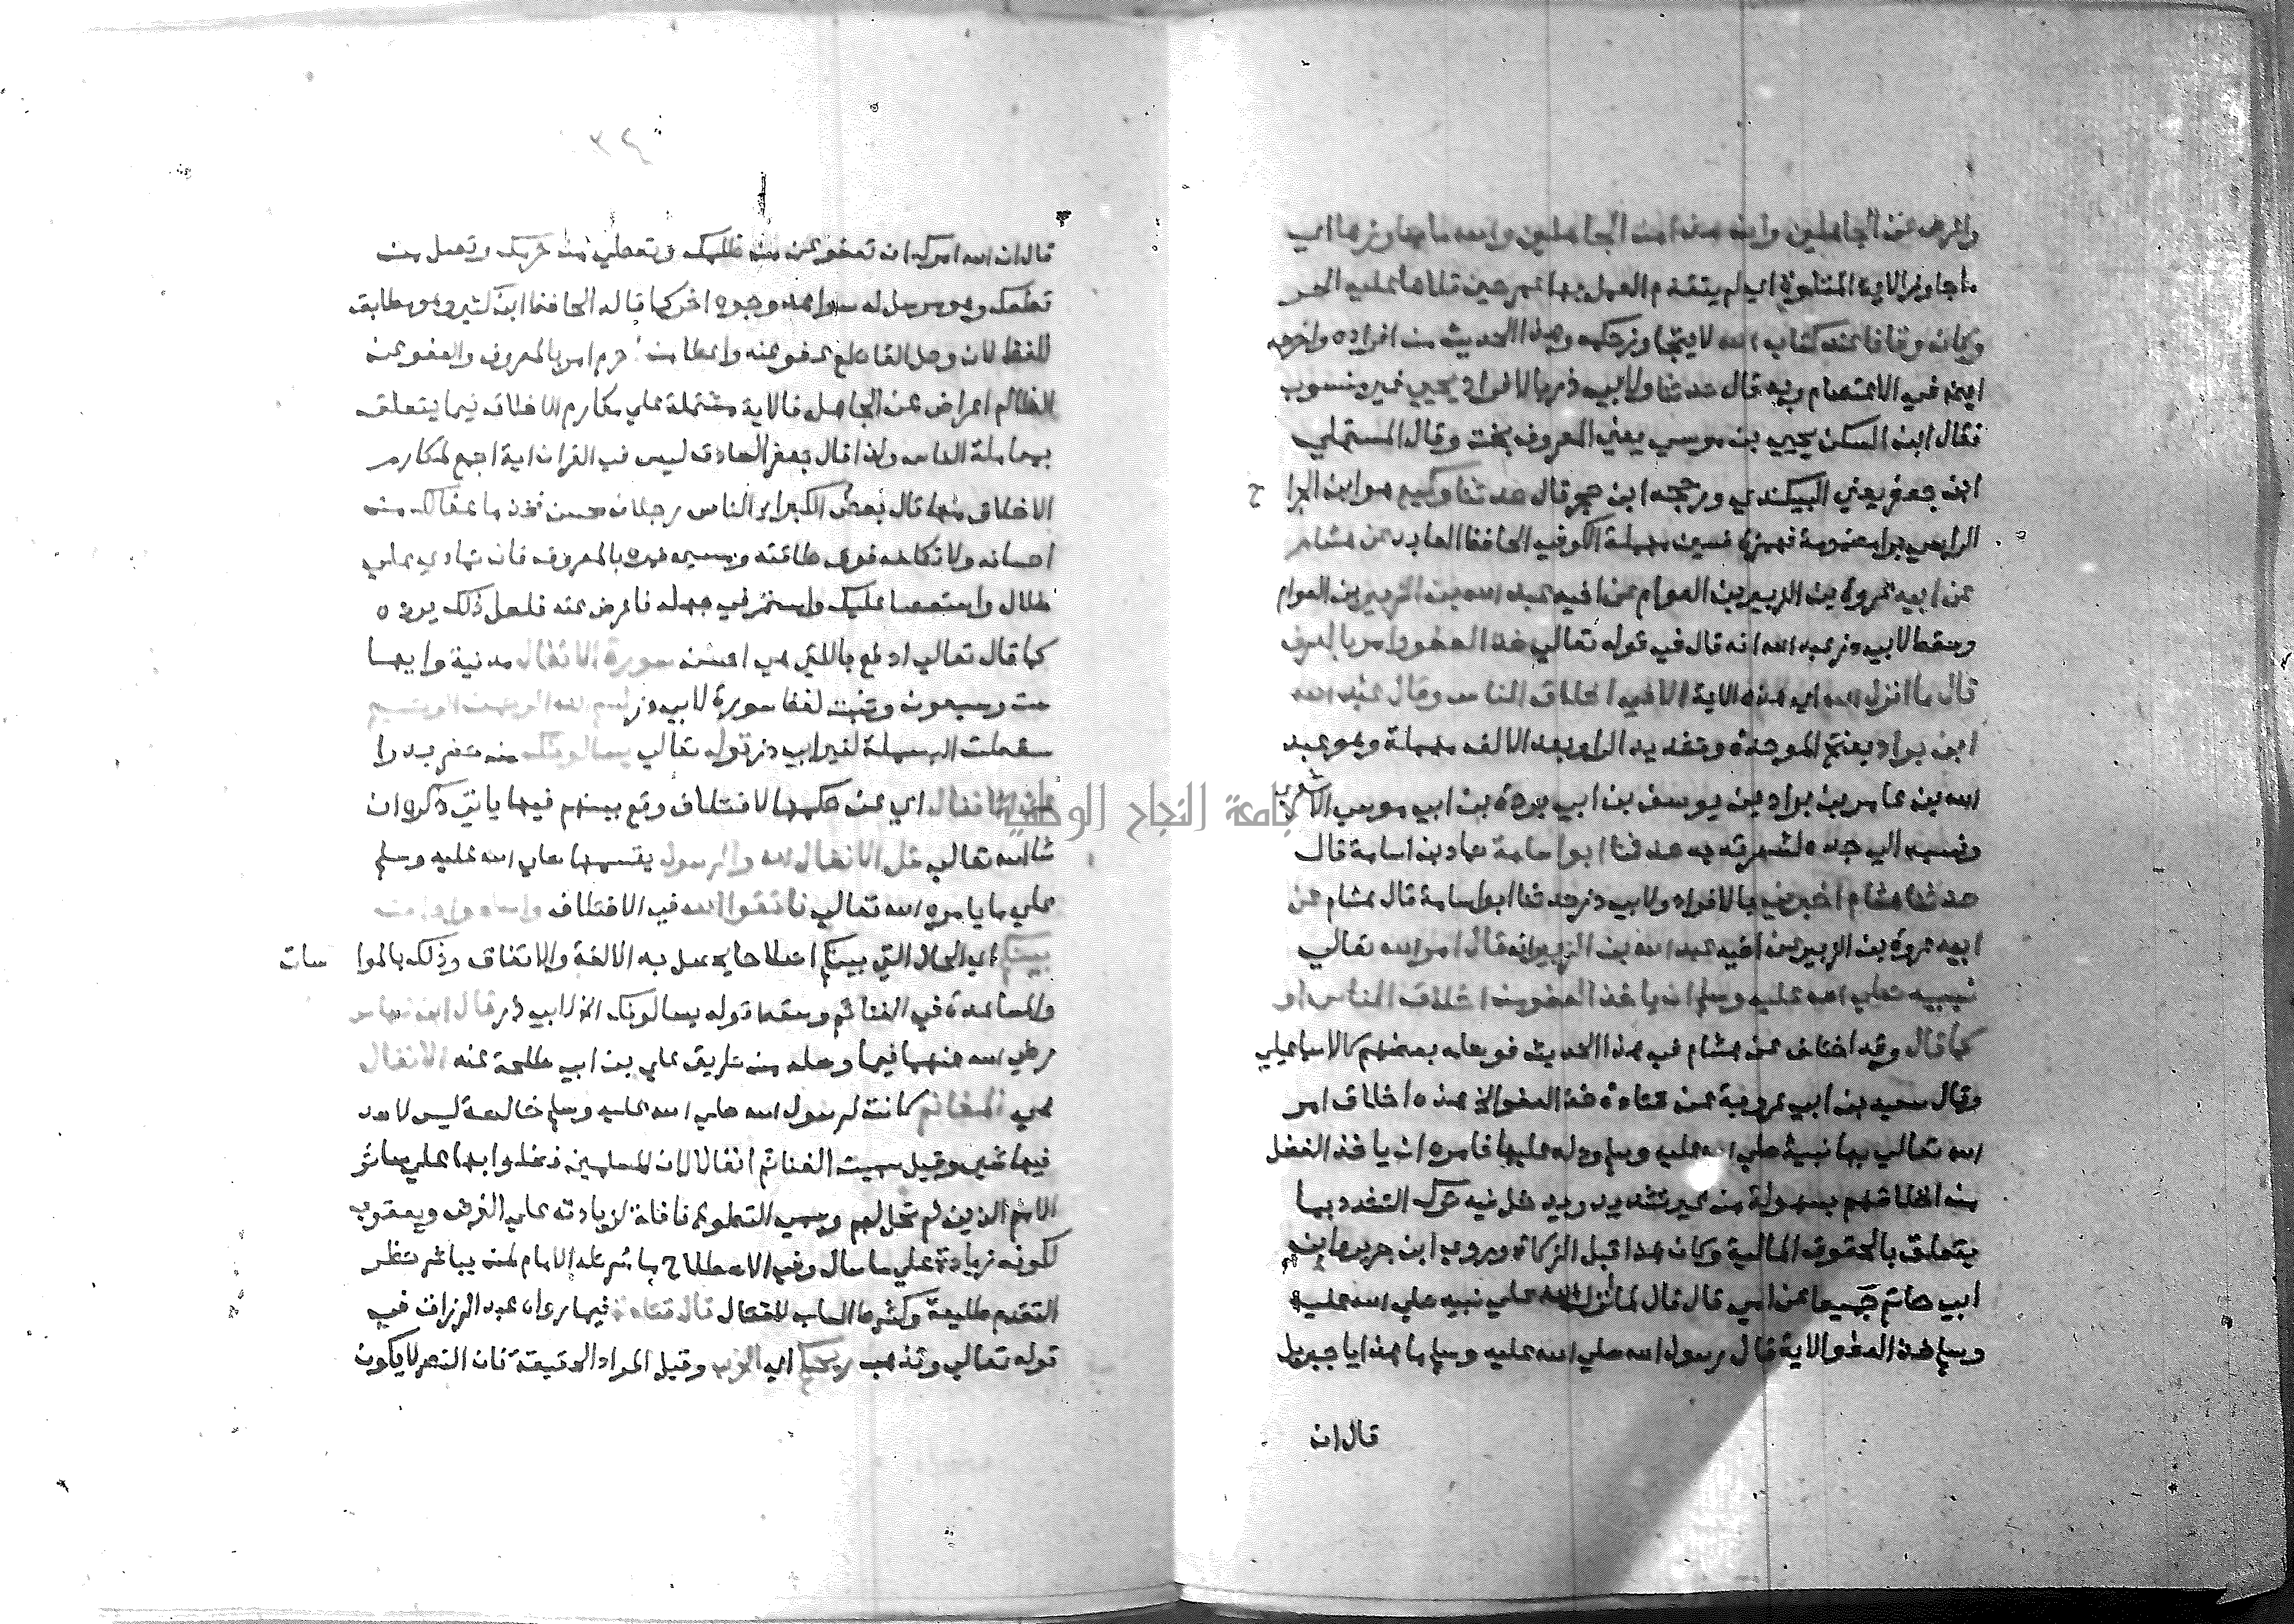 واعرض عن الجاهلين وان هذا من الجاهلين والله ما جاوزها اي
ما جاوز الاية المتلوة اي لم يتقدم العمل بها عمر حين تلاها عليه الحر
وكان وقافا عند كتاب الله لا يتجاوز حكمه وهذا الحديث من افراده واخرجه
ايضا في الاعتصام وبه قال حدثنا ولابي ذر بالافراد يحيي غير منسوب
فقال ابن السكن يحيي بن موسي يعني المعروف بخت وقال المستملي
ابن جعفر يعني البيكندي ورجحه ابن حجر قال حدثنا وكيع هو ابن الجراح
الراسي برا مضمومة فهمزة فسين مهملة الكوفي الحافظ العابد عن هشام
عن ابيه عروة بن الزبير بن العوام عن اخيه عبد الله بن الزبير بن العوام
وسقط لابي ذر عبد الله انه قال في قوله تعالي خذ العفو وامر بالعرف
قال ما انزل الله اي هذه الاية الا في اخلاق الناس وقال عبد الله
ابن براد بفتح الموحدة وتشديد الرا وبعد الالف مهملة وهو عبد
الله بن عامر بن براد بن يوسف بن ابي بردة بن ابي موسي الاشعري
ونسبه الي جده لشهرته به حدثنا ابو اسامة حماد بن اسامة قال
حدثنا هشام اخبرني بالافراد ولابي ذر حدثنا ابو اسامة قال هشام عن
ابيه عروة بن الزبير عن اخيه عبد الله بن الزبير انه قال امر الله تعالي
نبيه صلي الله عليه وسلم ان ياخذ العفو من اخلاق الناس او
كما قال وقد اختلف عن هشام في هذا الحديث فوصله بعضهم كالاسماعيلي
وقال سعيد بن ابي عروبة عن قتادة خذ العفو الخ هذه اخلاق امر
الله تعالي بها نبيه صلي الله عليه وسلم ودله عليها فامره ان ياخذ الفضل
من اخلاقهم بسهولة من غير تشديد ويدخل فيه ترك التشدد بما
يتعلق بالحقوق المالية وكان هذا قبل الزكاة وروي ابن جرير وابن
ابي حاتم جميعا عن ابي قال قال لما انزل الله علي نبيه صلي الله عليه
وسلم خذ العفو الاية قال رسول الله صلي الله عليه وسلم ما هذا يا جبريل
قال ان
قال ان الله امرك ان تعفو عمن ظلمك وتعطي من حرمك وتصل من
قطعك وهو مرسل له شواهد من وجوه اخر كما قاله الحافظ ابن كثير وهو مطابق
للفظ لان وصل القاطع عفو عنه واعطا من حرم امر بالمعروف والعفو عن
الظالم اعراض عن الجاهل فالاية مشتملة علي مكارم الاخلاق فيما يتعلق
بمعاملة الناس ولذا قال جعفر الصادق ليس في القران اية اجمع لمكارم
الاخلاق منها قال بعض الكبرا الناس رجلان محسن فخذ ما عفا لك من
احسانه ولا تكلفه فوق طاقته ومسي فمره بالمعروف فان تمادي علي
ضلاله واستعصا عليك واستمر في جهله فاعرض عنه فلعل ذلك يرده
كما قال تعالي ادفع بالتي هي احسن سورة الانفال مدنية وايها
ست وسبعون وثبت لفظ سورة لابي ذر بسم الله الرحمن الرحيم
سقطت البسملة لغير ابي ذر قوله تعالي يسالونك من حضر بدرا
عن الانفال اي عن حكمها لاختلاف وقع بينهم فيها ياتي ذكره ان
شا الله تعالي قل الانفال لله والرسول يقسمها صلي الله عليه وسلم
علي ما يامره الله تعالي فاتقوا الله في الاختلاف واصلحوا ذات
بينكم اي الحال التي بينكم اصلاحا يحصل به الالفة والاتفاق وذلك بالمواسات
والمساعدة في الغنائم وسقط قوله يسالونك الخ لابي ذر قال ابن عباس
رضي الله عنهما فيما وصله من طريق علي بن ابي طلحة عنه الانفال
هي المغانم كانت لرسول الله صلي الله عليه وسلم خالصة ليس لاحد
فيها شي وقيل سميت الغنائم انفالا لان المسلمين فضلوا بها علي سائر
الامم الذين لم تحل لهم وسمي التطوع نافلة لزيادته علي الفرض ويعقوب
لكونه زيادة علي ما سال وفي الاصطلاح ما شرطه الامام لمن يباشر خطر
التقدم طليعة وكشرط السلب للقاتل قال قتادة فيما رواه عبد الرزاق في
قوله تعالي وتذهب ريحكم اي الحرب وقيل المراد الحقيقة فان النصر لا يكون